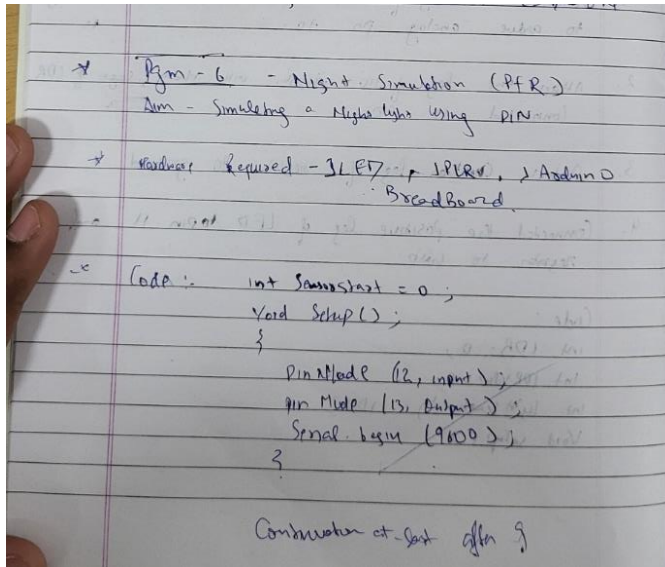 Pgm - 6 - Night Simulation (PIR)
Aim - Simulating a Night light using PIN
Hardware Required - 1 LED, 1 PIR, 1 Arduino
BreadBoard.
Code :- int Sensorstart = 0 ;
Void Setup() ;
{
pinMode (12, input) ;
pin Mode (13, Output) ;
Serial. begin (9600) ;
}
Continuation at last after 9